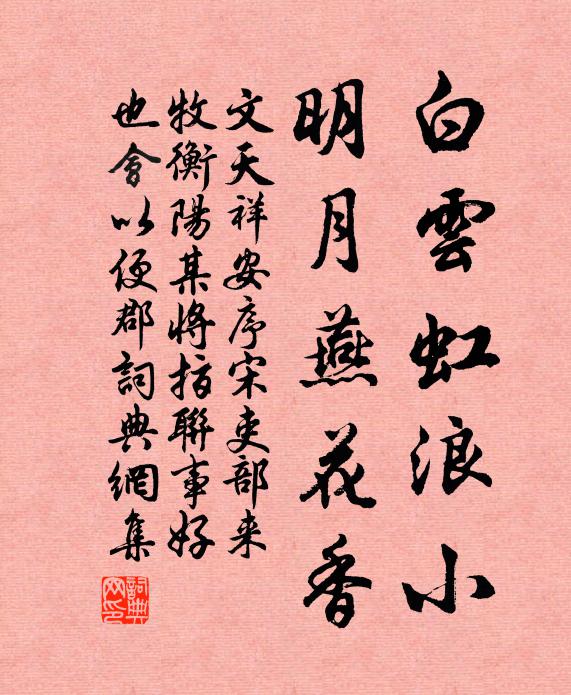 白雲虹浪小
明月燕花香
文天祥安序宋吏部来
牧衡陽某将指聯事好
也會以便郡詞典網集
詞典網印